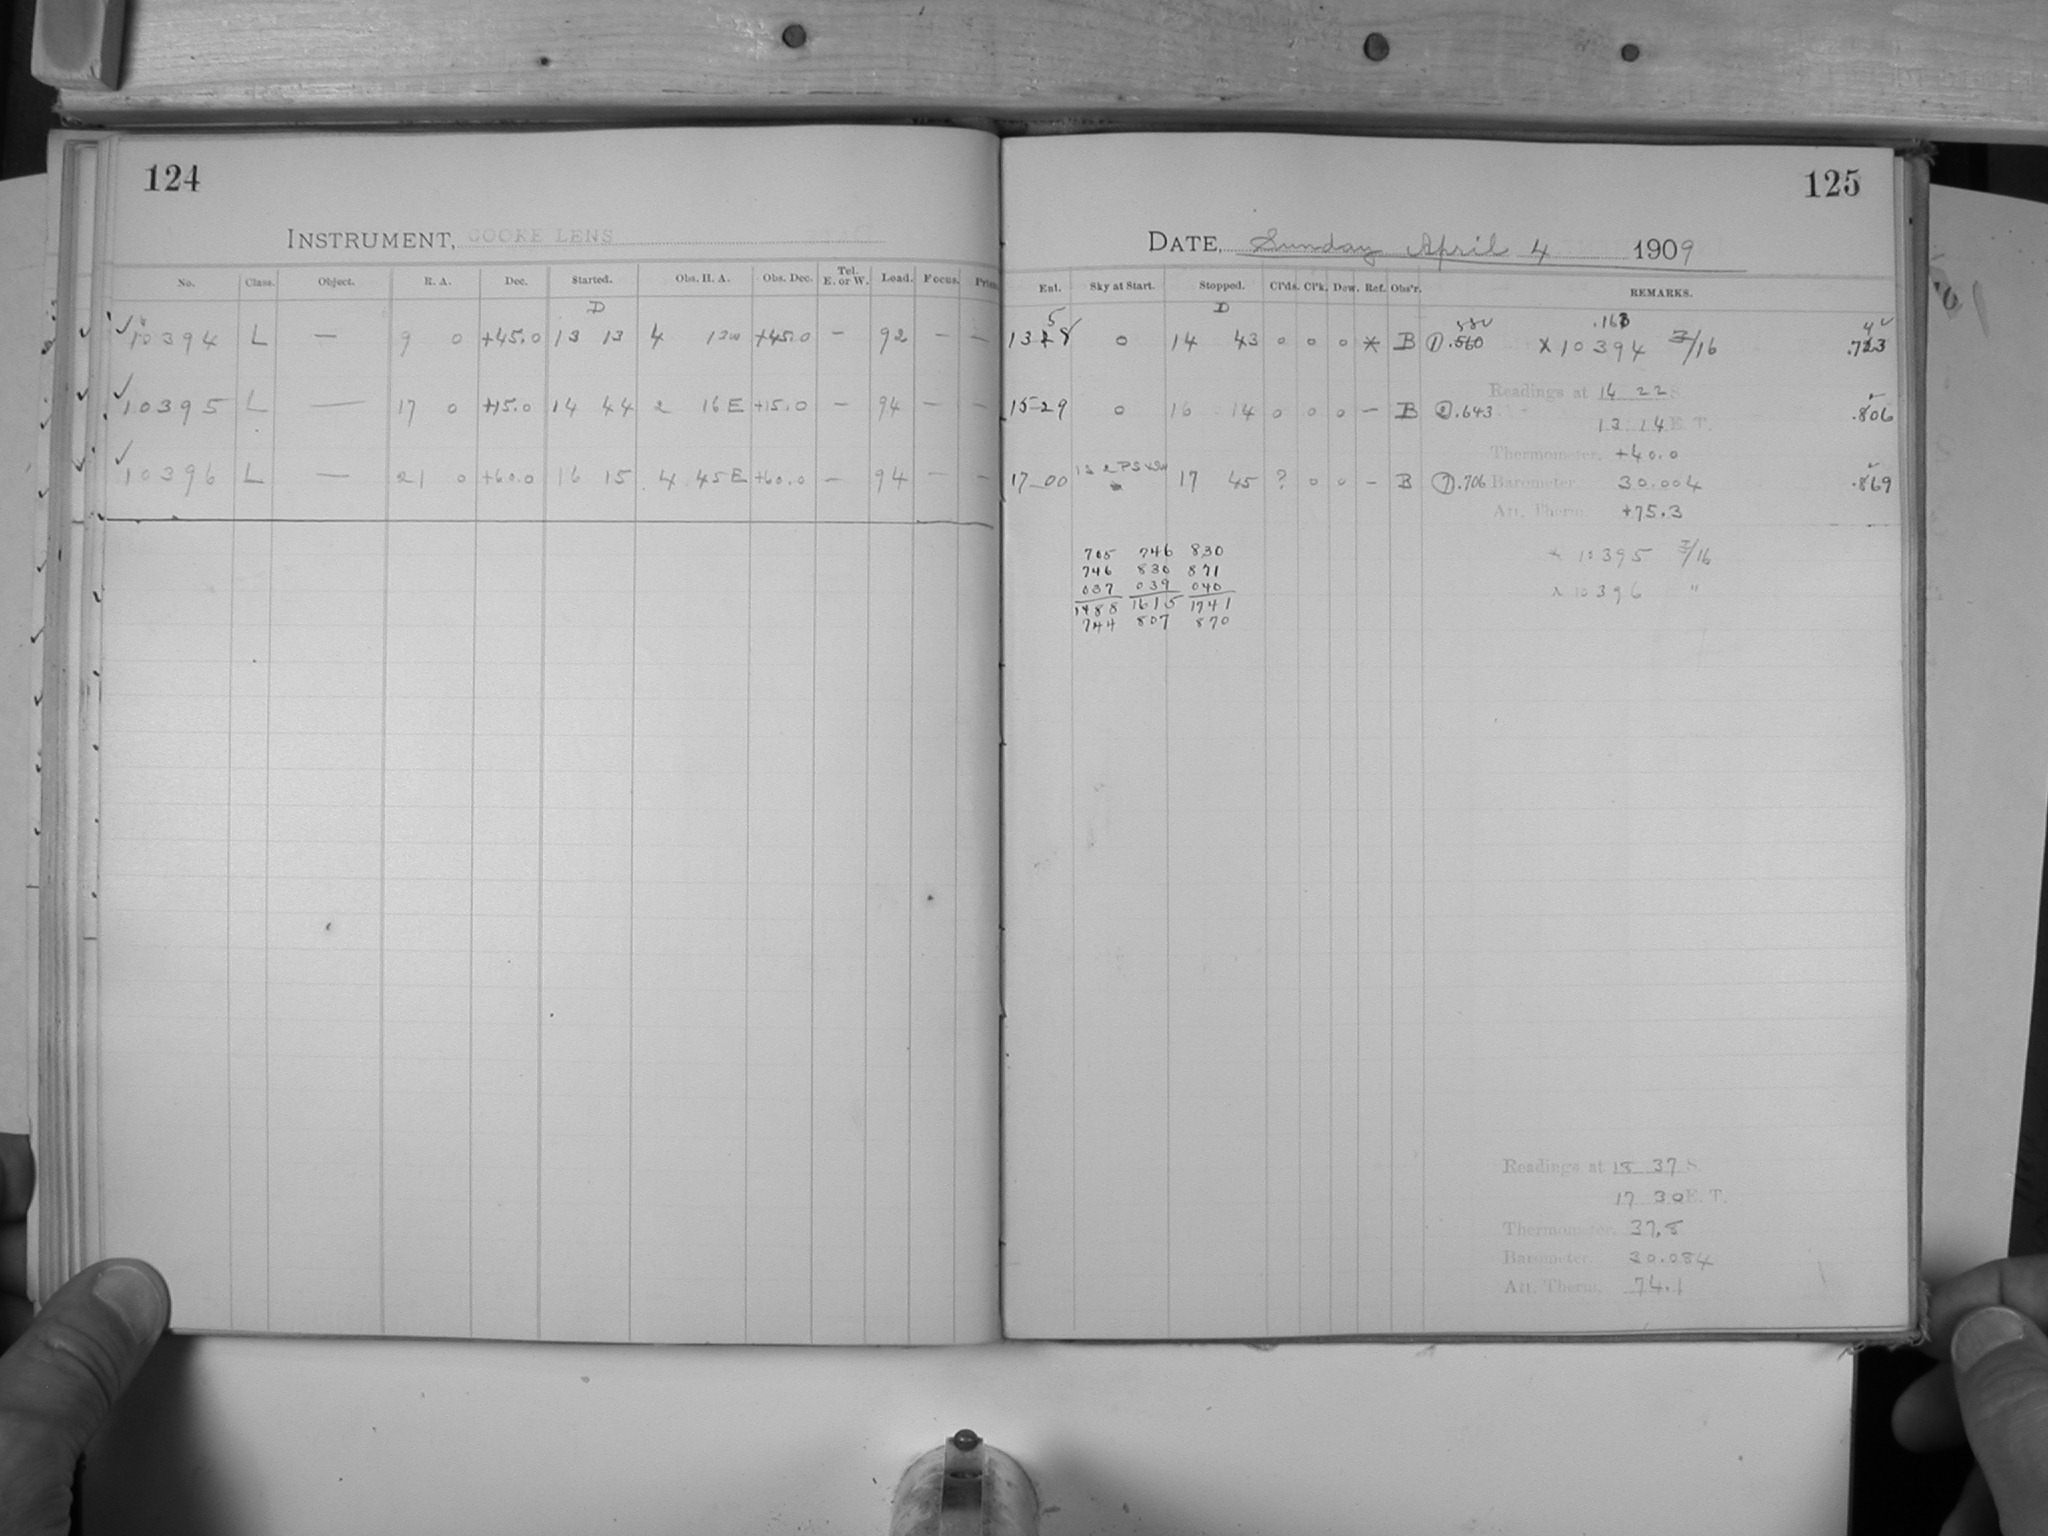 124
INSTRUMENT, COOKE LENS
No. Class. Object. R. A. Dec. Started. Obs. H. A. Obs. Dec. Tel. E. or W. Load. Focus. Prism
D
10394 L — 9 0 +45.0 13 13 4 13w +45.0 — 92 — —
10395 L — 17 0 +15.0 14 44 2 16E +15.0 — 94 — —
10396 L — 21 0 +60.0 16 15 4 45E +60.0 — 94 — —
125
DATE, Sunday April 4 1909
Exl. Sky at Start. Stopped. Cl'ds. Cl'k. Dew. Ref. Obs'r. REMARKS.
D
0 14 43 0 0 0 * B ① .560 × 10394 3/16
Readings at 14 22 S.
15 29 0 16 14 0 0 0 — B ② .643 .806
13 14 E. T.
Thermometer, +40.0
17 00 17 45 ? 0 0 — B .706 Barometer 30.004 .869
Att. Therm. +75.3
705 746 830
746 830 871
037 039 040
1488 1615 1741
744 807 870
× 10395 3/16
× 10396 "
Readings at 18 37 S.
17 30 E. T.
Thermometer, 37.8
Barometer 30.084
Att. Therm. 74.1